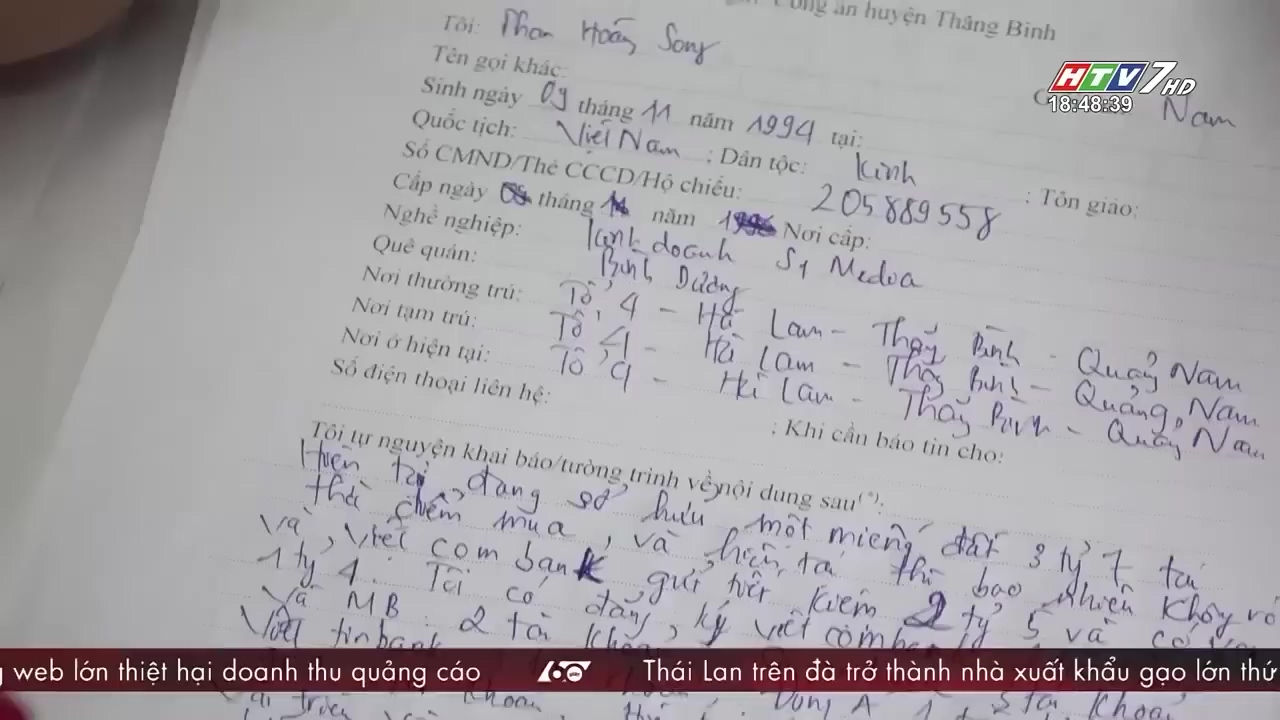 Công an huyện Thăng Bình
HTV7 HD
18:48:39
Nam
Tôi: Phan Hoàng Song
Tên gọi khác:
Sinh ngày 09 tháng 11 năm 1994 tại:
Quốc tịch: Việt Nam ; Dân tộc: Kinh ; Tôn giáo:
Số CMND/Thẻ CCCD/Hộ chiếu: 205889558
Cấp ngày tháng năm Nơi cấp:
Nghề nghiệp: Kinh doanh S1 Media
Quê quán: Bình Dương
Nơi thường trú: Tổ 4 - Hà Lam - Thăng Bình - Quảng Nam
Nơi tạm trú: Tổ 4 - Hà Lam - Thăng Bình - Quảng Nam
Nơi ở hiện tại: Tổ 4 - Hà Lam - Thăng Bình - Quảng Nam
Số điện thoại liên hệ:
; Khi cần báo tin cho:
Tôi tự nguyện khai báo/tường trình về nội dung sau(*):
Hiện tại đang sở hữu một miếng đất 3 tỷ 7 tại
thời điểm mua, và hiện tại thì bao nhiêu không rõ
và, Việt com bank gửi tiết kiệm 2 tỷ 5 và có
1 tỷ 4. Tôi có đăng ký việt com
và MB. 2 tài
Viettinbank
g web lớn thiệt hại doanh thu quảng cáo 60 giây Thái Lan trên đà trở thành nhà xuất khẩu gạo lớn thứ